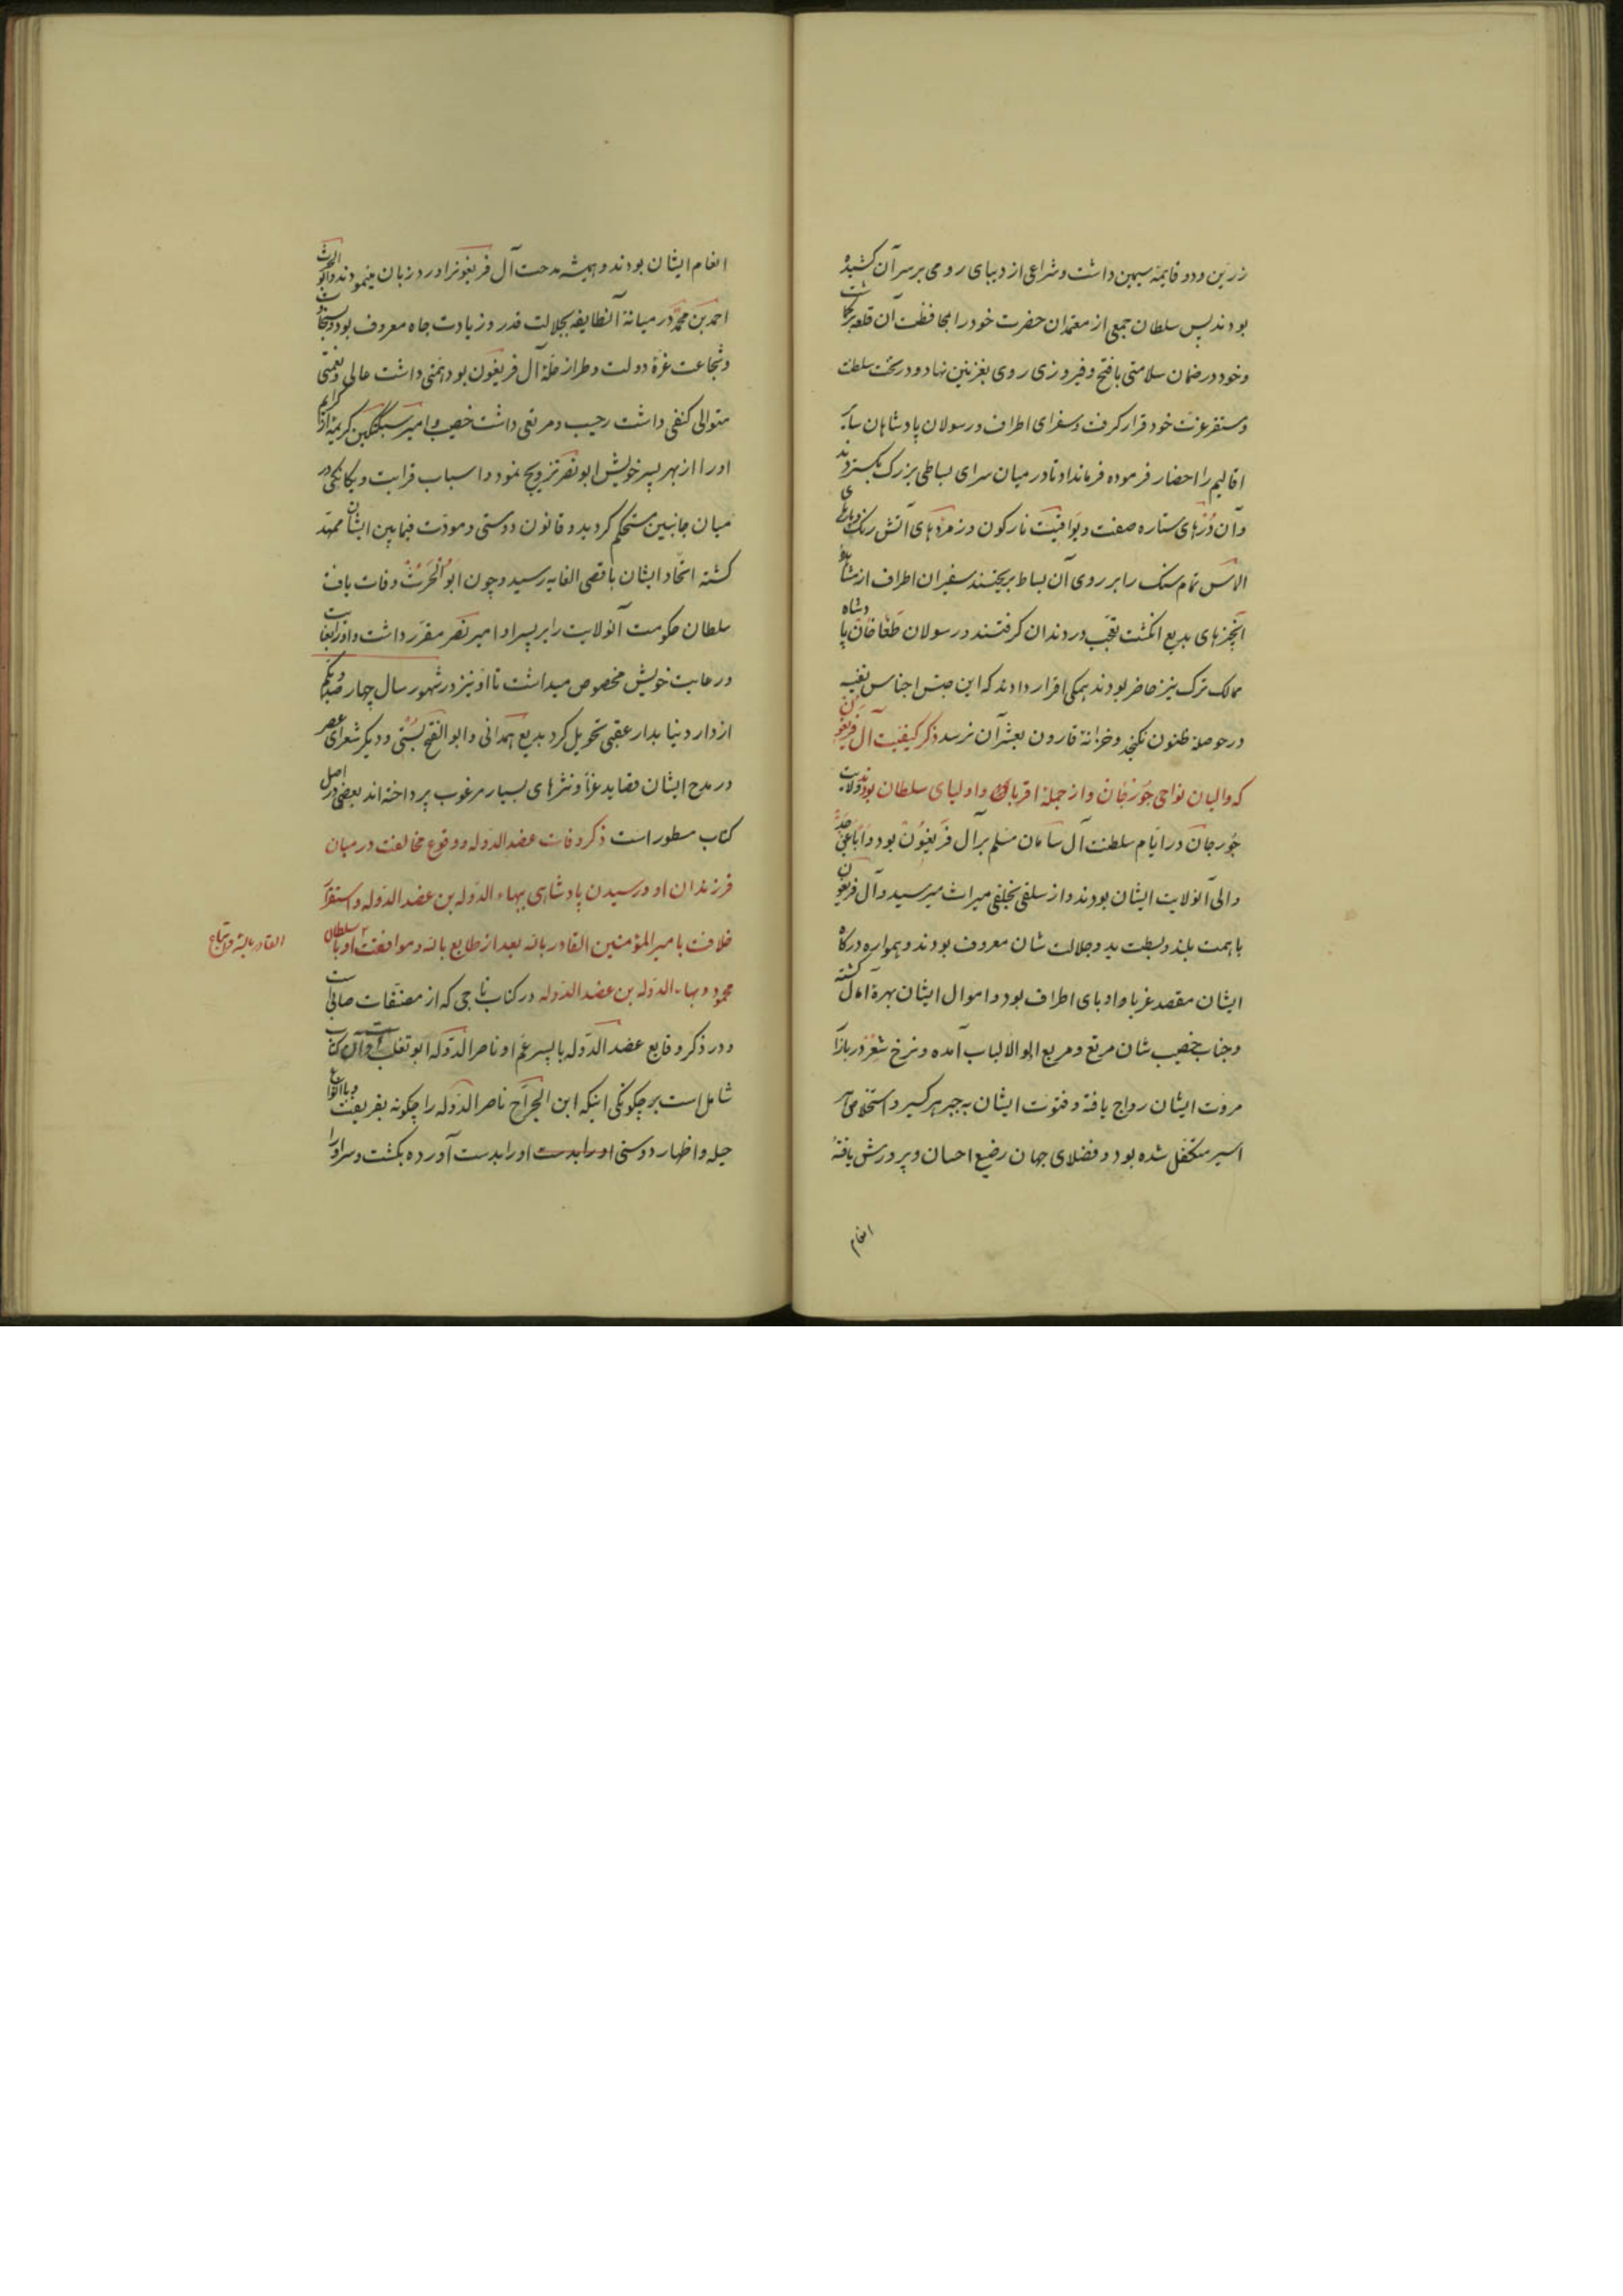 زرین ودو قایمه سیمین داشت وشراعی از دیبای رومی بر سر آن کشیده
بودند پس سلطان جمعی از معتمدان حضرت خود را بمحافظت آن قلعه برگماشت
وخود در ضمان سلامتی با فتح وفیروزی روی بغزنین نهاد ودر تخت سلطنت
ومستقر عزت خود قرار گرفت وسفرای اطراف ورسولان پادشاهان سایر
اقالیم را احضار فرموده فرمانداد تا در میان سرای بساطی بزرک بگستردند
وآن دُرّهای ستاره صفت ویواقیت نارکون وزمردهای آتش رنک وپارهای
الماس تمام سنک را بر روی آن بساط بریختند سفیران اطراف از مشاهدۀ
آنچیزهای بدیع انکشت تعجب در دندان کرفتند ورسولان طغاخان پادشاه
ممالک ترک نیز حاضر بودند همکی اقرار دادند که این جنس اجناس نفیسه
در حوصلۀ ظنون نکنجد وخزانۀ قارون بعشر آن نرسد ذکر کیفیت آل فریغون
که والیان نواحی جوزجان واز جملۀ اقربا واولیای سلطان بودند ولایت
جوزجان در ایام سلطنت آل سامان مسلم بر آل فریغون بود واباً عن جدٍّ
والی آنولایت ایشان بودند واز سلفی بخلفی میراث میرسید وآل فریغون
با همت بلند وبسطت ید وجلالت شان معروف بودند وهمواره درکاه
ایشان مقصد غربا وادبای اطراف بود واموال ایشان بهرۀ آمال کشته
وجناب خصیب شان مرتع ومربع اولو الالباب آمده ونرخ شعر در بازار
مروت ایشان رواج یافته وفتوت ایشان بجبر هر کسیر واستخلاص هر
اسیر متکفل شده بود وفضلای جهان رضیع احسان وپرورش یافتۀ
انعام
انعام ایشان بودند وهمیشه مدحت آل فریغونرا ورد زبان مینمودند وابو الحرث
احمد بن محمد در میانۀ آنطایفه بجلالت قدر وزیادت جاه معروف بود وبسخاوت
وشجاعت غرۀ دولت وطراز حلۀ آل فریغون بود همتی داشت عالی ونعمتی
متوالی کنفی داشت رحیب ومرتعی داشت خصیب وامیر سبکتکین کریمۀ از کرایم
اورا از بهر پسر خویش ابو نصر تزویج نمود واسباب قرابت ویکانکی در
میان جانبین مستحکم کردید وقانون دوستی ومودت فیمابین ایشان ممهد
کشته اتحاد ایشان باقصی الغایه رسید وچون ابو الحرث وفات یافت
سلطان حکومت آنولایت را بر پسر او امیر نصر مقرر داشت واورا بعنایت
ورعایت خویش مخصوص میداشت تا او نیز در شهور سال چهار صد ویکم
از دار دنیا بدار عقبی تحویل کرد بدیع همدانی وابو الفتح بُستی ودیکر شعرای عصر
در مدح ایشان قصاید غرّا ونثرهای بسیار مرغوب پرداخته اند بعضی در اصل
کتاب مسطور است ذکر وفات عضد الدوله ووقوع مخالفت در میان
فرزندان او ورسیدن پادشاهی ببهاء الدوله بن عضد الدوله واستقرار
خلافت بامیر المؤمنین القادر بالله بعد از طایع بالله وموافقت او با سلطان
محمود وبهاء الدوله بن عضد الدوله در کتاب تاجی که از مصنفات صابی است
ودر ذکر وقایع عضد الدوله با پسر عم او ناصر الدوله ابو تغلب است وآن کتاب
شامل است بر چکونکی اینکه ابن الجراح ناصر الدوله را چکونه بفریفت وبا انواع
حیله واظهار دوستی اورا بدست اورا بدست آورده بکشت وسر اورا